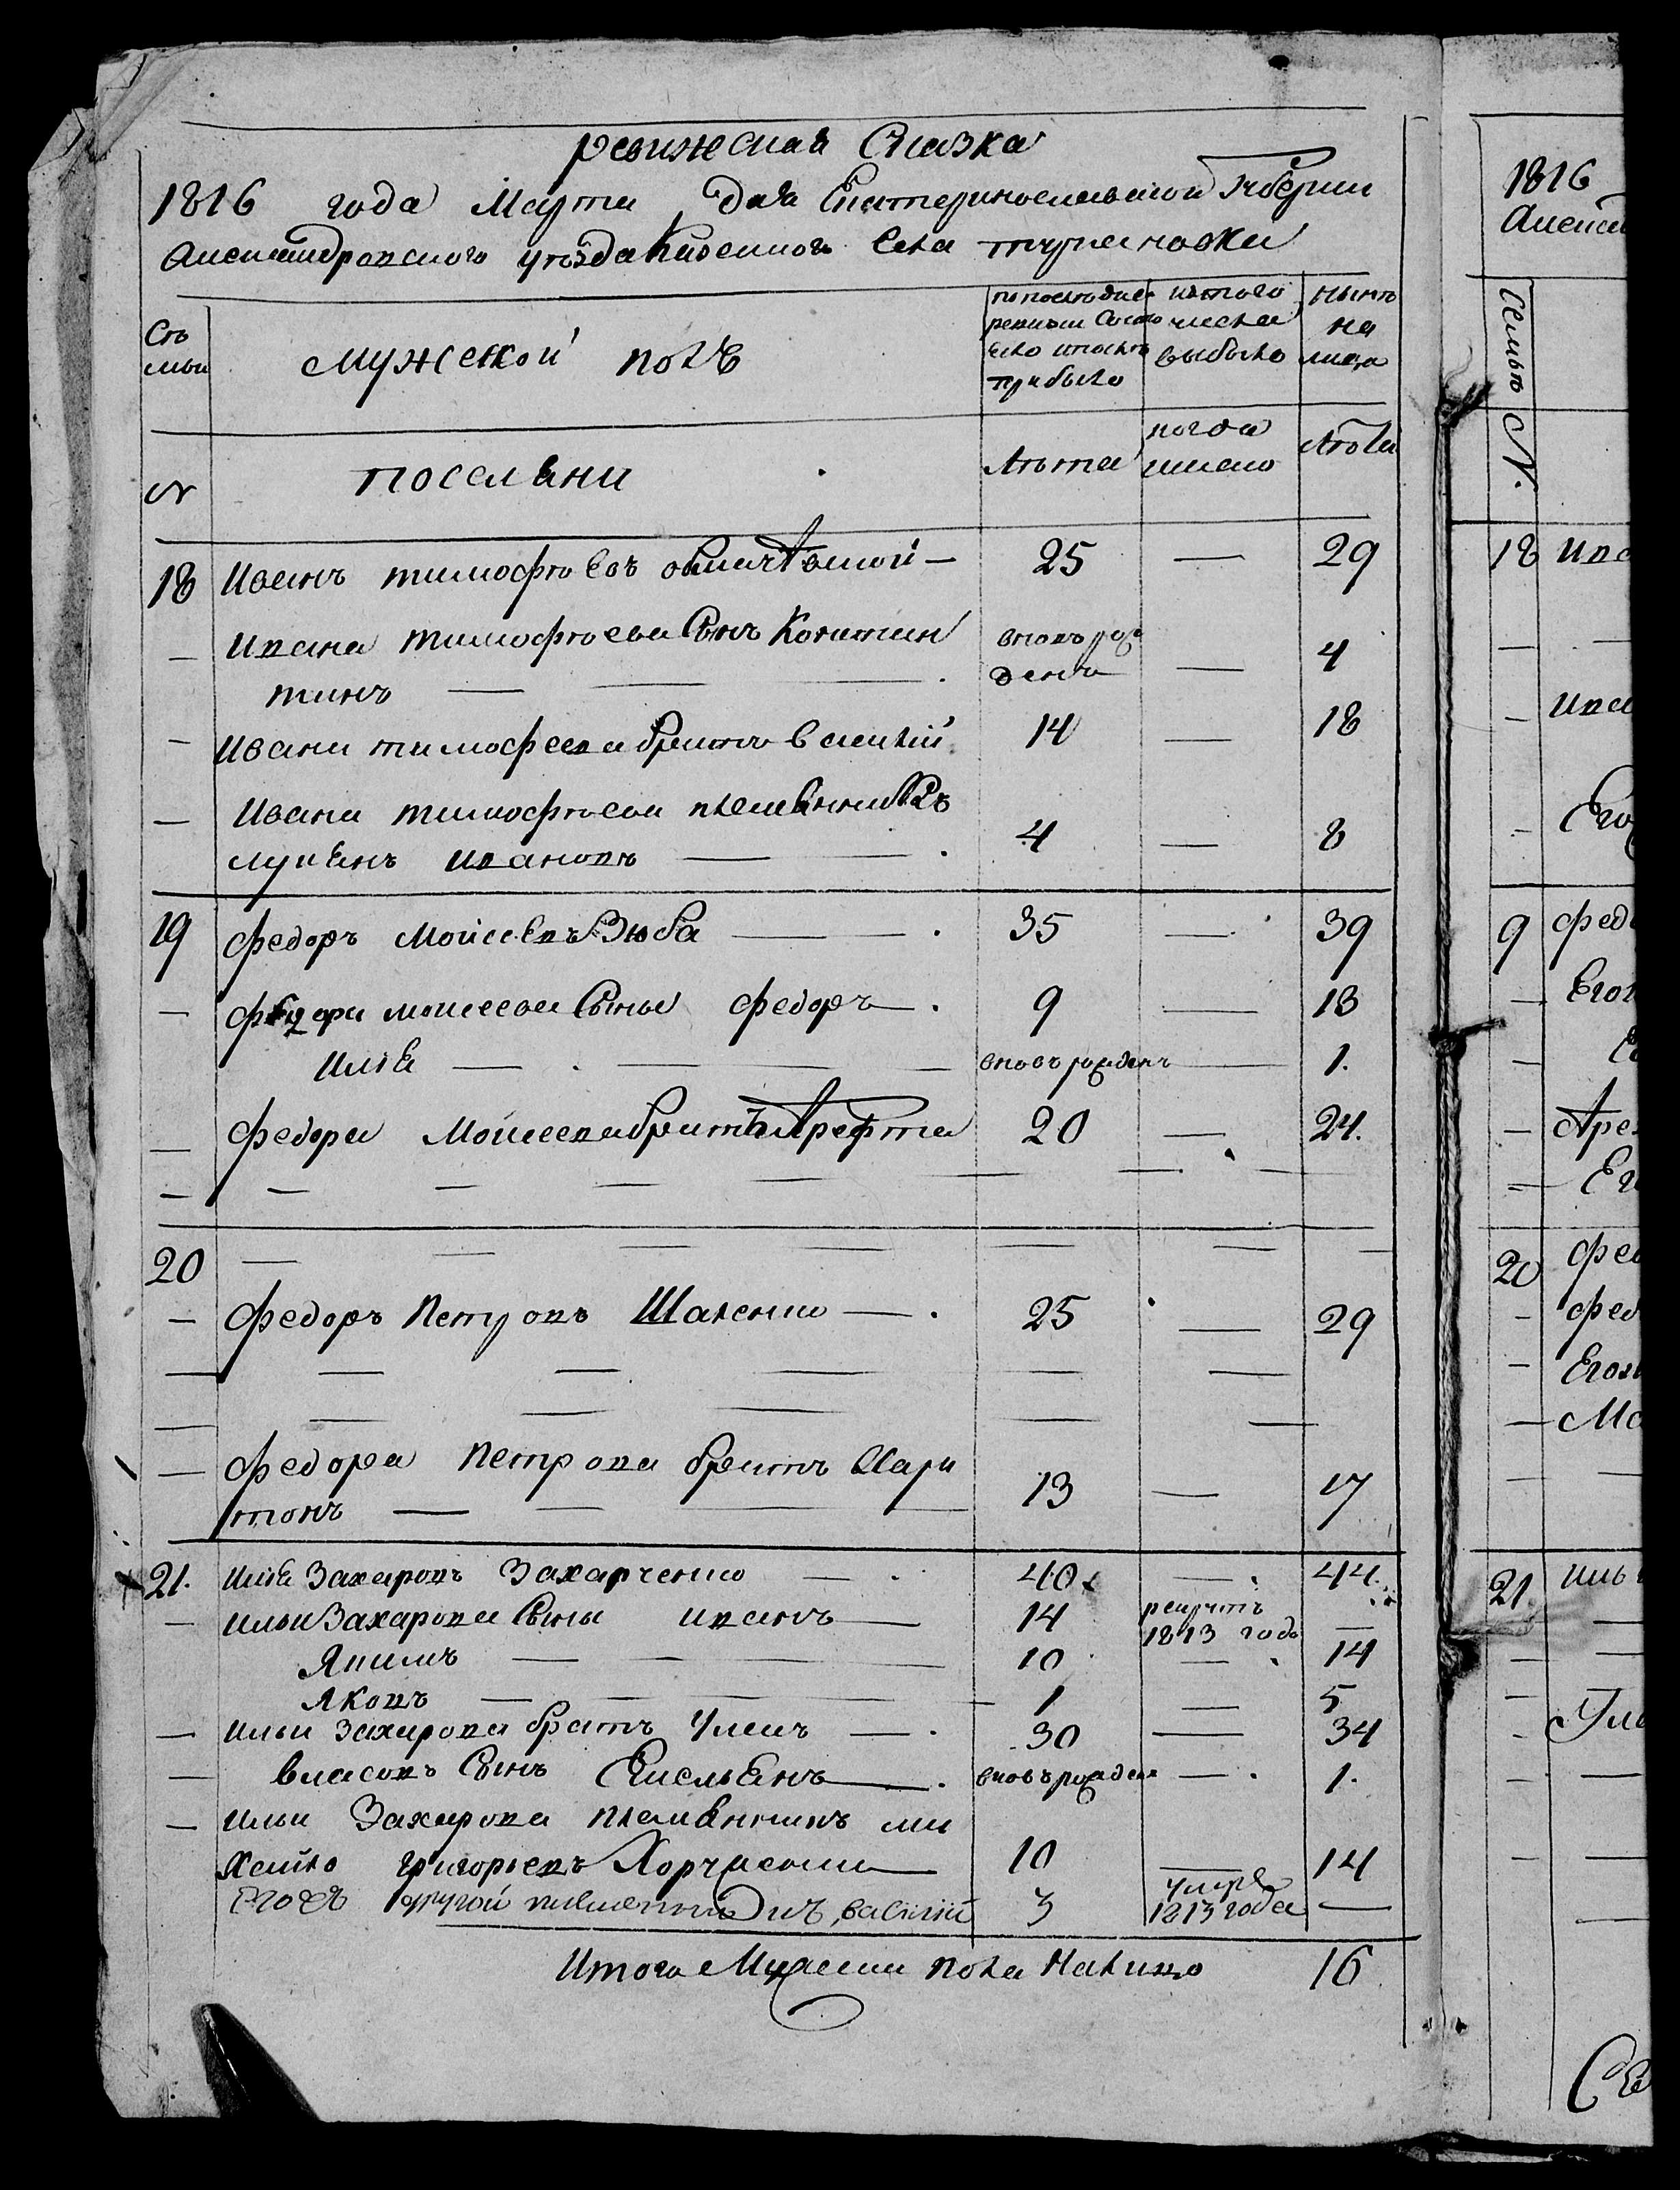 ревижская Сказка
1816 года Марта дня Екатеринославской Губернии
Александровского уезда Казенного Села турчановки
Съ
мьи
мужеской полъ
попоследней
ревизии Состо
яло ипослъ
прибыло
изтого
числа
выбыло
Нынъ
на
лицо
№
поселяни
лъта
когда
имено
лъта
18 Иванъ тимофъевъ — 25 — 29
— Ивана тимофъева Сынъ Констан вновь рож 4
тинъ — — — денъ —
— Ивана тимофеева братъ василий 14 — 18
— Ивана тимофъева племянникъ
лукянъ ивановъ — — 4 — 8
19 федоръ моисеевъ Зюба — — 35 — 39
— федора моисеева Сыны федоръ — 9 — 13
Илья — — — — вновь рожденъ — 1.
— федора Моисеева братъ Арефта 20 — 24.
— — — — — — — — —
20 — — — — — — —
— федоръ Петровъ Шаленко — 25 — 29
— — — — — —
— — — — — —
— федора Петрова братъ Хари
тонъ — — — 13 — 17
21. Илья Захаровъ Захарченко — 40 — 44
— Ильи Захарова Сыны иванъ — 14 рекрутъ
1813 годъ —
Якимъ — — — — 10 — 14
Яковъ — — — — 1 — 5
— Ильи Захарова братъ Уласъ — 30 — 34
— власовъ Сынъ Емельянъ — вновь рожденъ — 1.
— Ильи Захарова племянникъ ми
хайло григорьевъ — 10 — 14
Егожъ другой василий 3 умре
1813 года —
Итого Мужеска пола Налицо 16
1816
Алексан
Семьи №.
18 Ива
— —
— Ива
— Его
9 федо
— Егож
—
— Аре
— Ег
20 Фед
— фед
— Егож
— Ма
— —
21. Иль
— —
— —
—
— Ула
— —
— —
—